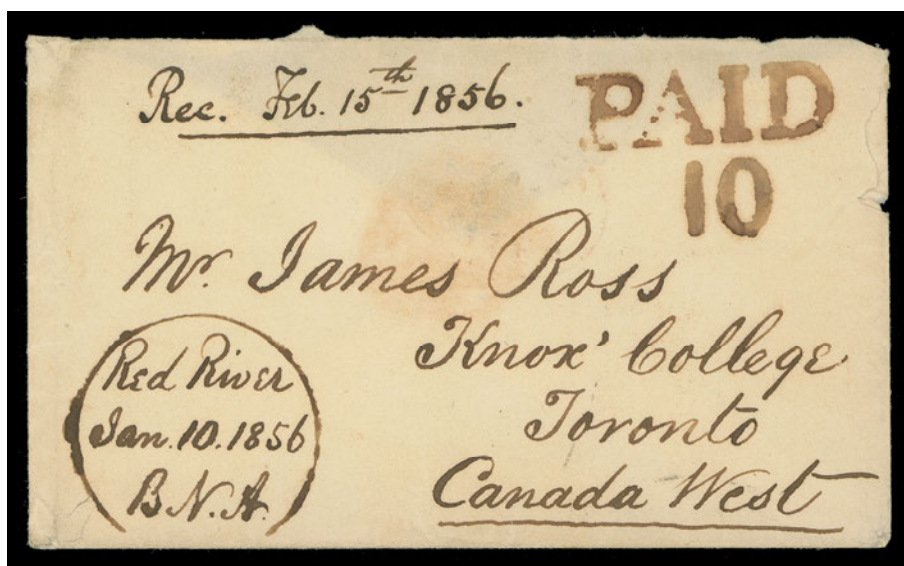 Rec. Feb. 15th 1856.
PAID
10
Mr. James Ross
Knox' College
Toronto
Canada West
Red River
Jan. 10. 1856
B. N. A.